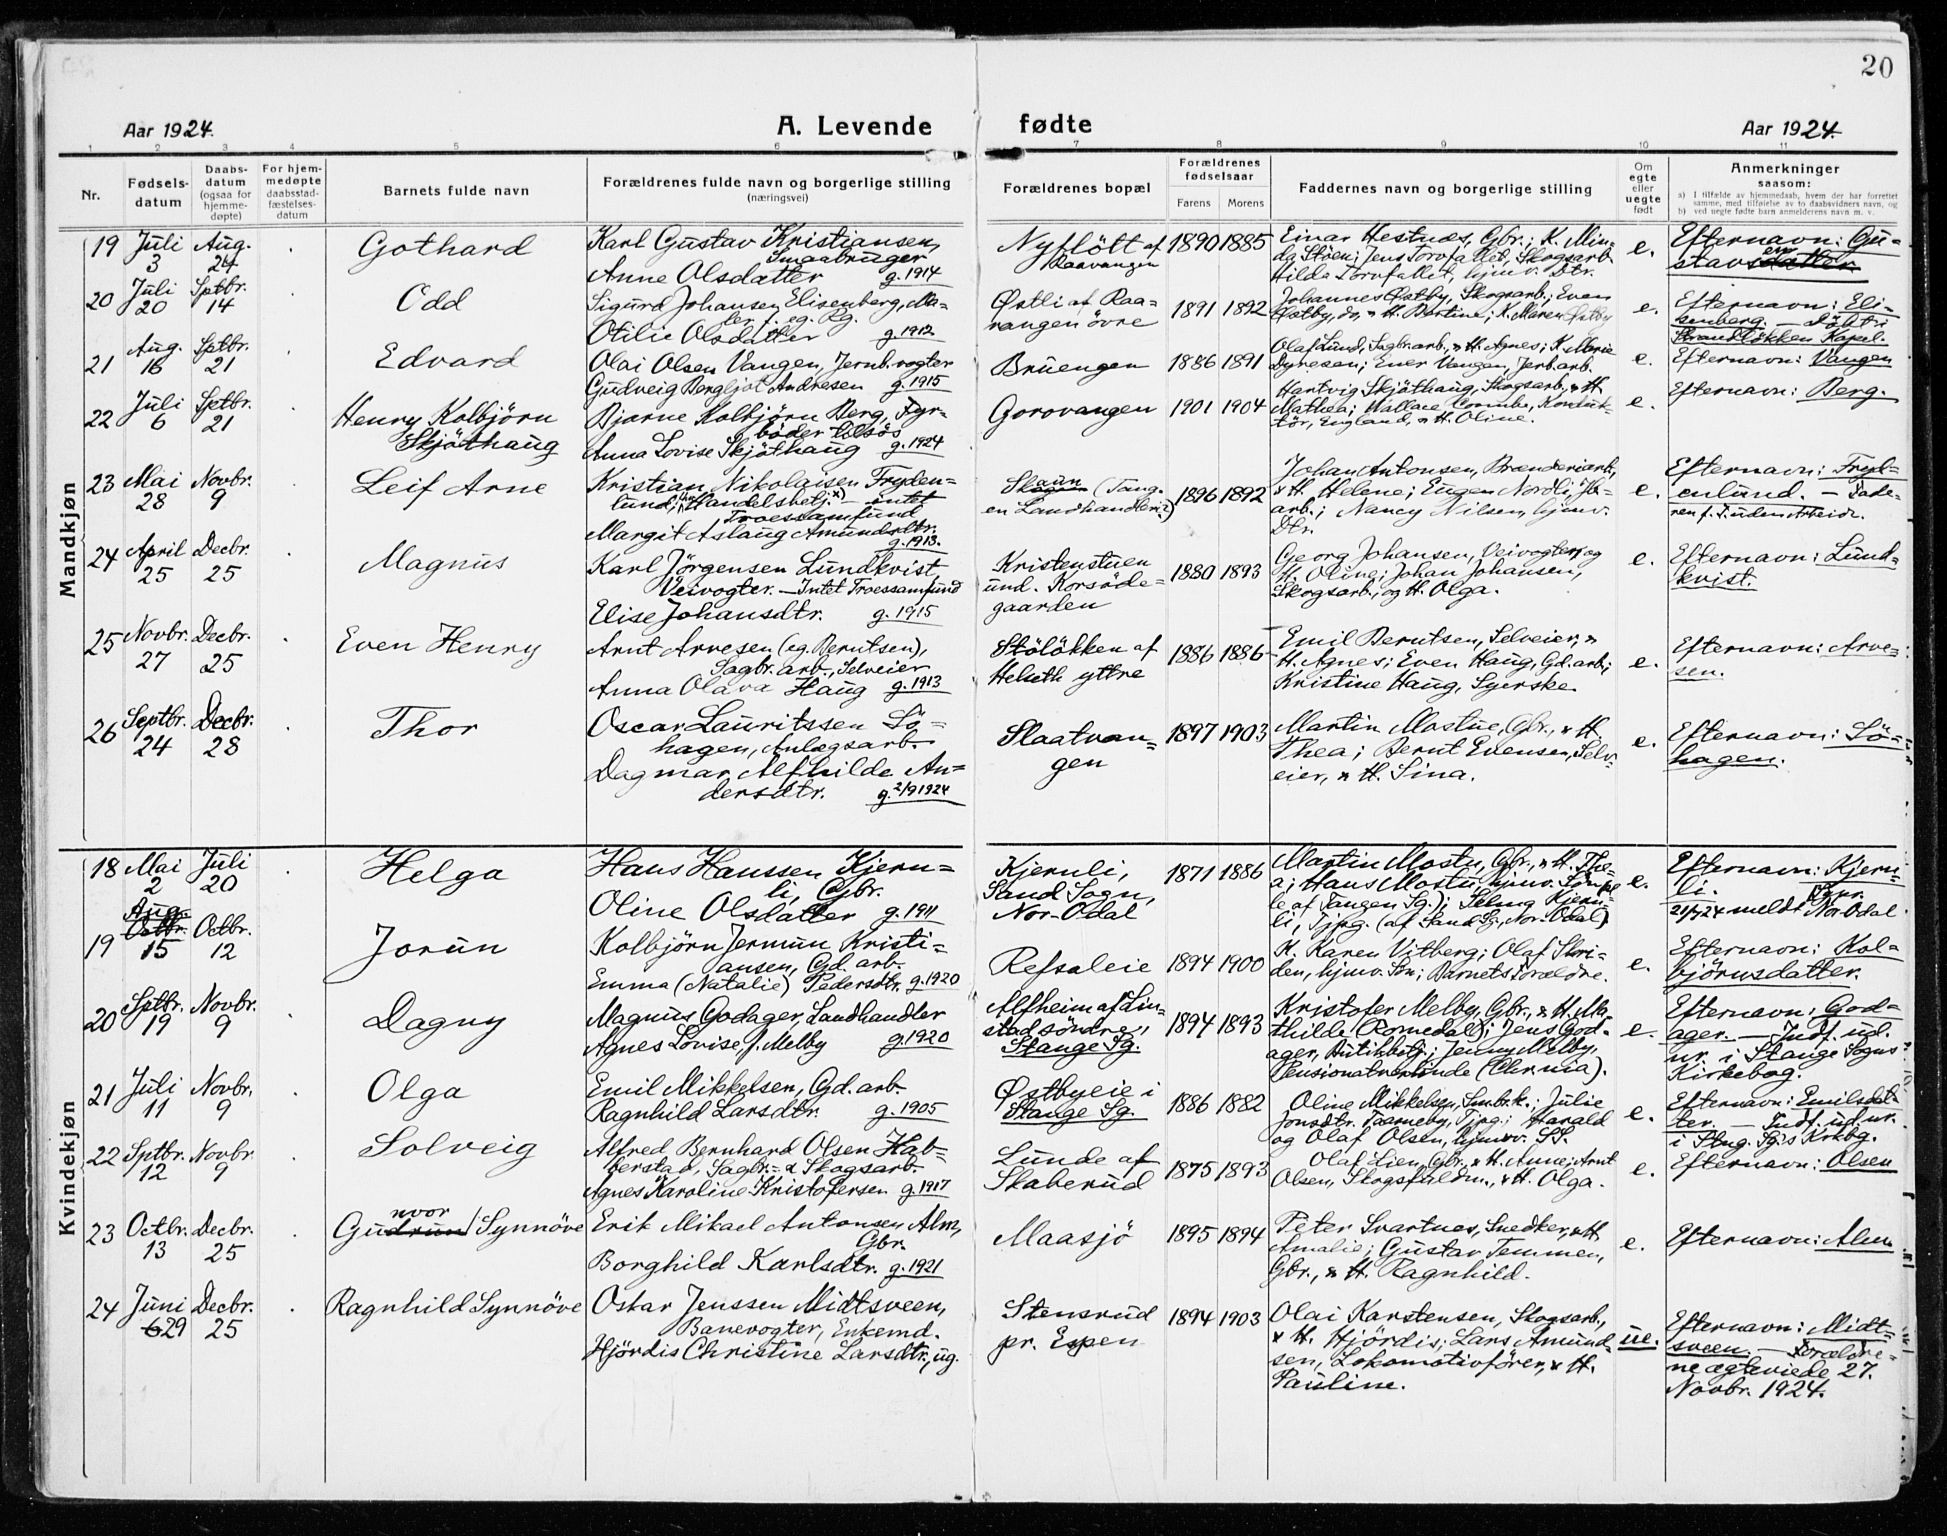 20
Aar 1924.
A. Levende fødte
Aar 1924.
1 2 3 4 5 6 7 8 9 10 11
Nr.
Fødsels-
datum
Daabs-
datum
(ogsaa for
hjemme-
døpte)
For hjem-
medøpte
daabsstad-
fæstelses-
datum
Barnets fulde navn
Forældrenes fulde navn og borgerlige stilling
(næringsvei)
Forældrenes bopæl
Forældrenes
fødselsaar
Farens Morens
Faddernes navn og borgerlige stilling
Om
egte
eller
uegte
født
Anmerkninger
saasom:
a) I tilfælde av hjemmedaab, hvem der har forrettet
samme, med tilføielse av to daabsvidners navn, og
b) ved uegte fødte barn anmelderens navn m. v.
Mandkjøn
19
Juli
3
Aug.
24
Gothard
Karl Gustav Kristiansen,
Smaabruger
Anne Olsdatter g. 1914
Nyflött af
Raavangen
1890 1885
Einar Hestnæs, Gbr.; K. Min-
da Stöen; Jens Torvfallet, Skogsarb.
Hilda Torvfallet, hjmv. Dtr.
e.
Efternavn: Gu-
stavsdatter
sen
20
Juli
20
Septbr.
14
Odd
Sigurd Johansen Elisenberg, Ma-
ler f. eg. Rg.
Otilie Olsdatter g. 1912
Östli af Raa-
vangen övre
1891 1892
Johannes Østby, Skogsarb.; Even
Østby, do. & H. Bertine; K. Maren Østby
e.
Efternavn: Eli-
senberg. Döbt i
Strandlökken Kapel.
21
Aug.
16
Septbr.
21
Edvard
Olai Olsen Vangen, Jernb.vogter
Gudveig Bergljot Andresen g. 1915
Bruengen
1886 1891
Olaf Lund, Sagbr.arb. & H. Agnes; K. Marie
Dyresen; Ener Vangen, Jerb.arb.
e.
Efternavn: Vangen
22
Juli
6
Septbr.
21
Henry Kolbjörn
Skjöthaug
Bjarne Kolbjörn Berg, Fyr-
böder tilsös
Anna Lovise Skjöthaug g. 1924
Gorovangen
1901 1904
Hartvig Skjöthaug, Skogsarb., & H.
Mathea; Wallace Coombe, Konduk-
tör, England, & H. Oline.
e.
Efternavn: Berg.
23
Mai
28
Novbr.
9
Leif Arne
Kristian Nikolaisen Fryden-
lund, Handelsbetj. x) — intet
Troessamfund
Margit Aslaug Amundsdtr.
g. 1913.
Skaun (Tang-
en Landhandleri?)
1896 1892
Johan Antonsen, Brænderiarb.,
& H. Helene; Eugen Nordli, Jb-
arb.; Nancy Nilsen, hjmv.
Dtr.
e.
Efternavn: Fryd-
enlund. — Fade-
ren f. T. uden Arbeide.
24
April
25
Decbr.
25
Magnus
Karl Jörgensen Lundkvist,
Veivogter. — Intet Troessamfund
Elise Johansdtr. g. 1915
Kristenstuen
und. Korsöde-
gaarden
1880 1893
Georg Johansen, Veivogter, og
H. Oline; Johan Johansen,
Skogsarb., og H. Olga.
e.
Efternavn: Lund-
kvist.
25
Novbr.
27
Decbr.
25
Even Henry
Arnt Arvesen (eg. Berntsen),
Sagbr.arb., Selveier
Anna Olava Haug g. 1913
Stölökken af
Helseth yttre
1886 1886
Emil Berntsen, Selveier, &
H. Agnes; Even Haug, Gd.arb.;
Kristine Haug, Syerske.
e.
Efternavn: Arve-
sen.
26
Septbr.
24
Decbr.
28
Thor
Oscar Lauritssen Sö-
hagen, Anlægsarb.
Dagmar Alfhilde An-
dersdtr. g. 2/9 1924
Slaatvan-
gen
1897 1903
Martin Mostue, Gbr., & H.
Thea; Bernt Evensen, Selv-
eier, & H. Sina.
e.
Efternavn: Sö-
hagen.
Kvindekjøn
18
Mai
2
Juli
20
Helga
Hans Hanssen Kjern-
li, Gbr.
Oline Olsdatter g. 1911
Kjernli,
Sand Sogn,
Nor-Odal
1871 1886
Martin Mostu, Gbr., & H. The-
a; Hans Mostu, hjmv. Sön (al-
le af Tangen Sg.); Selma Kjern-
li, Tjpg. (af Sand Sg., Nor-Odal)
e.
Efternavn: Kjern-
li.
21/7 24 meldt Nor Odal
19
Aug.
Octbr.
15
Octbr.
12
Jorun
Kolbjörn Jermun Kristi-
ansen, Gd. arb.
Emma (Natalie) Pedersdtr. g. 1920
Refsaleie
1894 1900
K. Karen Vitberg; Olaf Skri-
den, hjmv. Sön; Barnets Forældre.
e.
Efternavn: Kol-
björnsdatter.
20
Septbr.
19
Novbr.
9
Dagny
Magnus Godager, Landhandler
Agnes Lovise, f. Melby g. 1920
Alfheim af Lin-
stad söndre,
Stange Sg.
1894 1893
Kristofer Melby, Gbr., & H. Ma-
thilde (Romedal); Jens God-
ager, Butikbetj.; Jenny Melby,
Pensionatværtinde (Chr.nia).
e.
Efternavn: God-
ager. — Indf. ud.
nr. i Stange Sogns
Kirkebog.
21
Juli
11
Novbr.
9
Olga
Emil Mikkelsen, Gd. arb.
Ragnhild Larsdtr. g. 1905
Østbyeie i
Stange Sg.
1886 1882
Oline Mikkelsen, Smbr.k.; Julie
Jonsdtr. Taarneby, Tjpg.; Harald
og Olaf Olsen, hjmv. SS.
e.
Efternavn: Emilsdat-
ter. — Indf. ud. nr.
i Stng. Sg.s Krkbg.
22
Septbr.
12
Novbr.
9
Solveig
Alfred Bernhard Olsen Hab-
berstad, Sagbr.- & Skogsarb.
Agnes Karoline Kristofersen g. 1917
Lunde af
Skaberud
1875 1893
Olaf Lien, Gbr., & H. Anne; Arnt
Olsen, Skogsfuldm., & H. Olga.
e.
Efternavn: Olsen
23
Octbr.
13
Decbr.
25
nvor
Gudrun Synnöve
Erik Mikael Antonsen Alm,
Gbr.
Borghild Karlsdtr. g. 1921
Maasjö
1895 1894
Peter Svartnes, Snedker, & H.
Amalie; Gustav Temmen,
Gbr., & H. Ragnhild.
e.
Efternavn: Alm
24
Juni
6 29
Decbr.
25
Ragnhild Synnöve
Oskar Jenssen Midtsveen,
Banevogter, Enkemd.
Hjördis Christine Larsdtr., ug.
Stensrud
pr. Espen
1894 1903
Olai Karstensen, Skogsarb.,
& H. Hjördis; Lars Amund-
sen, Lokomotivförer, & H.
Pauline.
ue.
Efternavn: Midt-
sveen. — Forældre-
ne ægteviede 27.
Novbr. 1924.